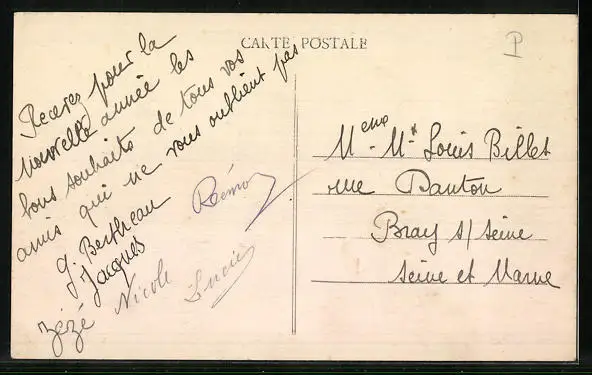 CARTE POSTALE
P
Recevez pour la
nouvelle année les
bons souhaits de tous vos
amis qui ne vous oublient pas
J. Bertheau
Jacques
Zézé Nicole Lucie
Rémon
Meme Mr Louis Billet
rue Danton
Bray s/ Seine
Seine et Marne